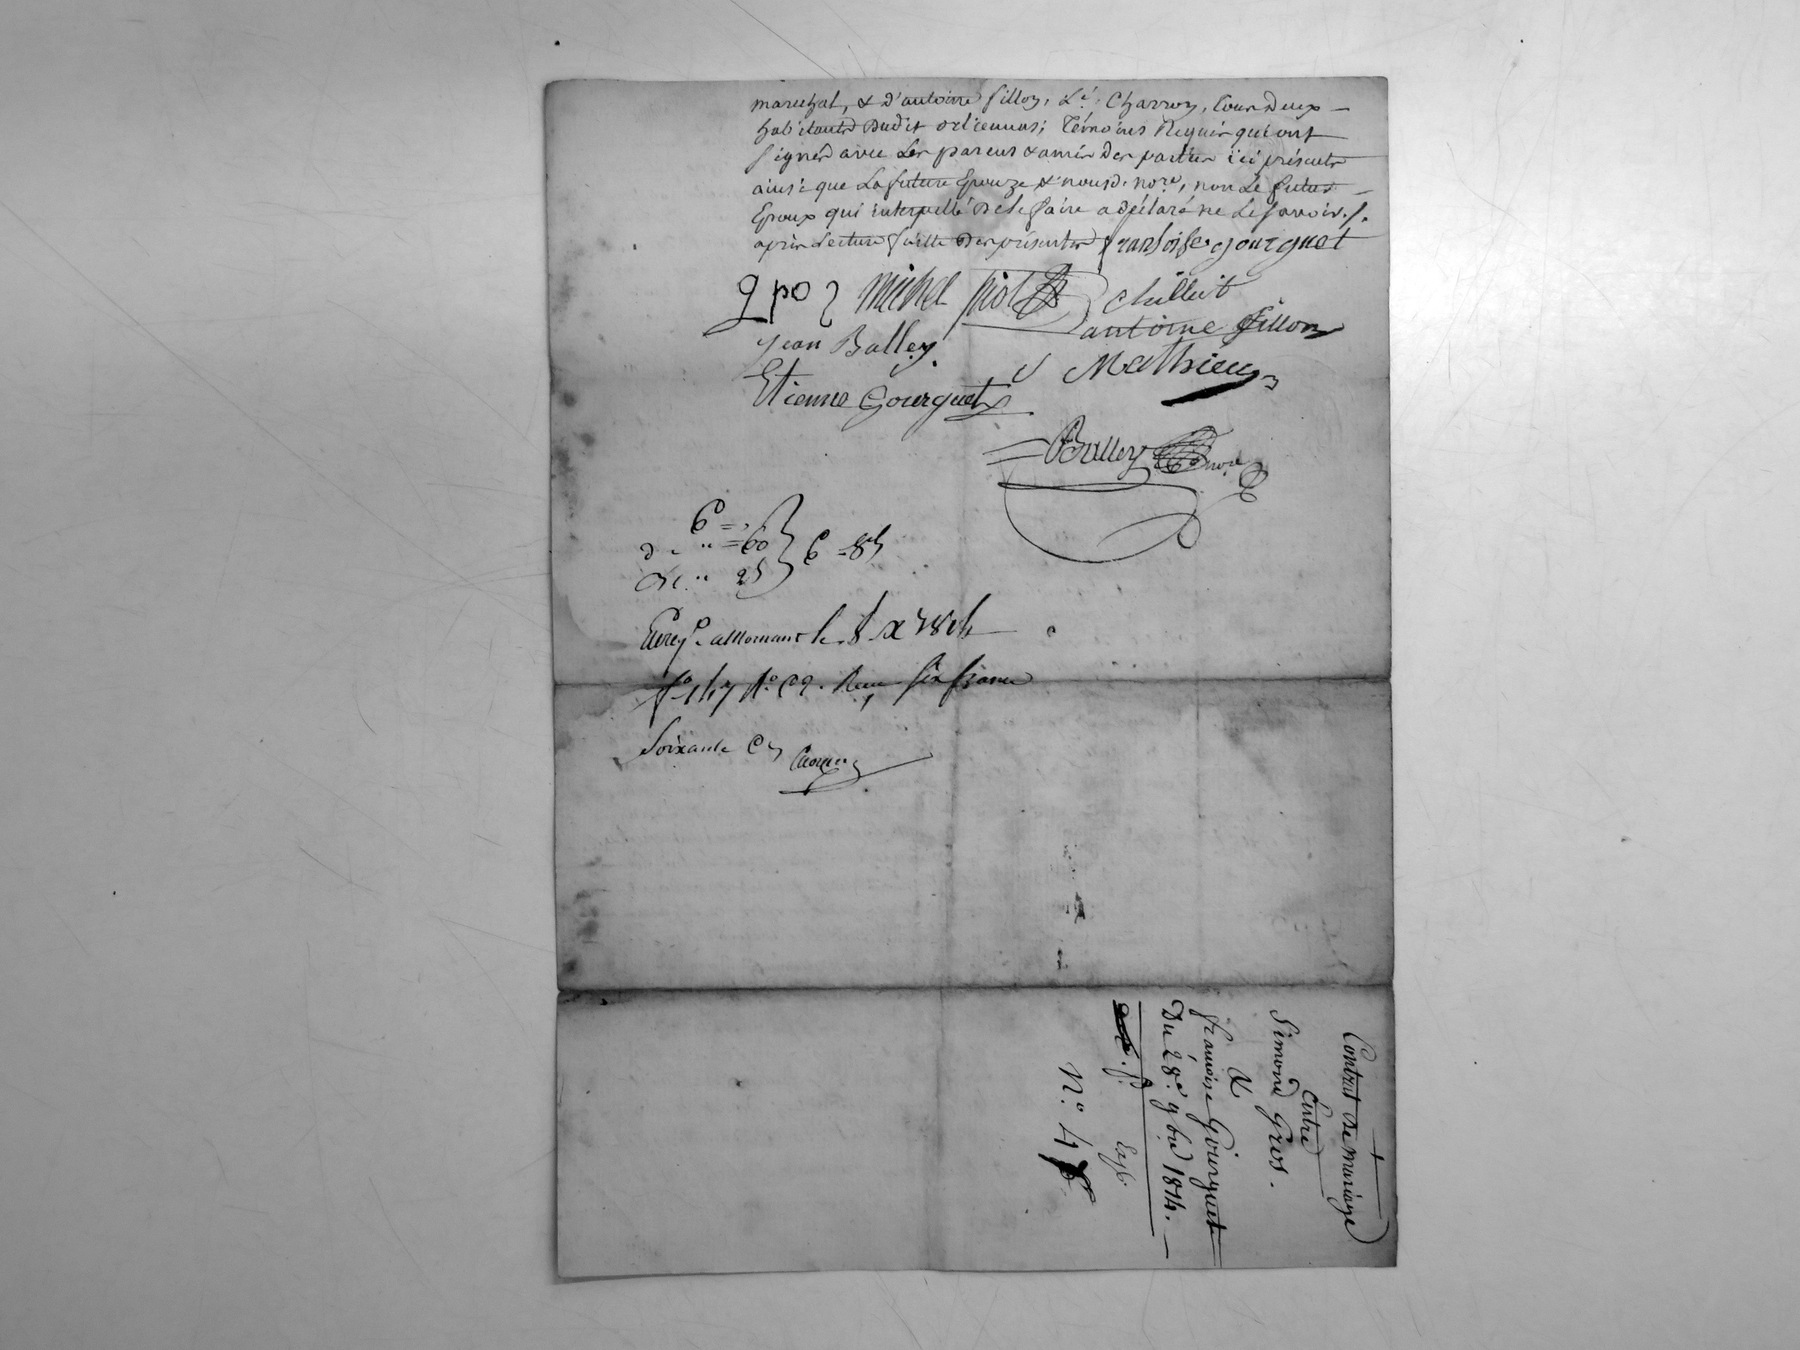 marechal, & d'antoine fillon, Le. Charron, tous deux
habitants dudit orlienas; témoins requis qui ont
signés avec les parens & amis des parties ici présents
ainsi que La future Epouze & nous d. nore, non Le futur
Epoux qui interpellé de le faire a déclaré ne Le savoir./.
après Lecture faitte des présentes fransoise gourguet
Michel
antoine fillon
jean Balley
J Mathieu
Etienne Gourguet
Balley nore
6 =
d. " = 60
25
6 = 85
Enreg. a Mornant le 8 Xbre 1814
f° 147 R° C 2. Recu six francs
Soixante Ces
Contrat de mariage
Entre
Simond Gros.
&
francoise Gourguet
Du 28e 9bre 1814.
Exp.
N.o 4